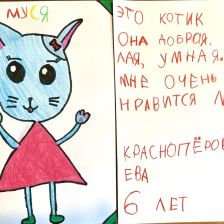 МУСЯ
ЭТО КОТИК
ОНА ДОБРАЯ,
ЛАЯ, УМНАЯ.
МНЕ ОЧЕНЬ
НРАВИТСЯ
КРАСНОПЁРОВ
ЕВА
6 ЛЕТ